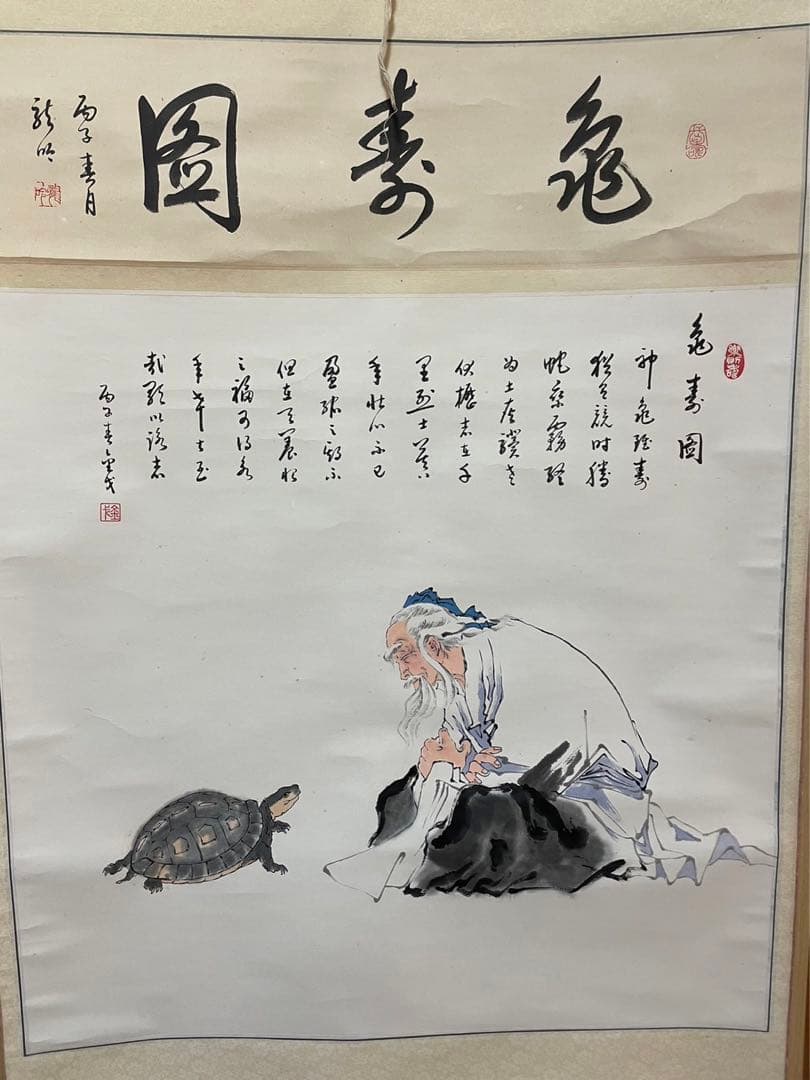 龜壽圖
丙子春月
龍吟
龜壽圖
神龜雖壽
猶有競時騰
蛇乘霧終
為土灰驥老
伏櫪志在千
里烈士暮
年壯心不已
盈縮之期不
但在天養怡
之福可得永
年幸甚至
哉歌以詠志
丙子春金戈